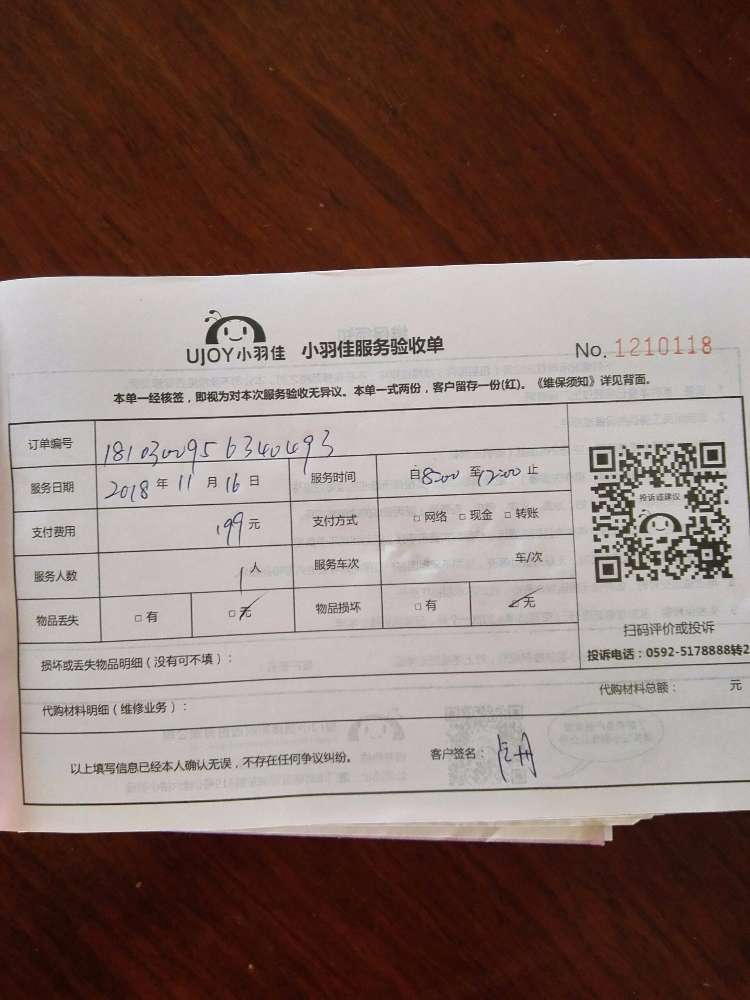 UJOY小羽佳 小羽佳服务验收单 No. 1210118
本单一经核签，即视为对本次服务验收无异议。本单一式两份，客户留存一份(红)。《维保须知》详见背面。
订单编号 1810300956340493
服务日期 2018 年 11 月 16 日 服务时间 自8:00 至12:00 止
投诉或建议
支付费用 199 元 支付方式 □ 网络 □ 现金 □ 转账
服务人数 1 人 服务车次 车/次
物品丢失 □ 有 □ 无 物品损坏 □ 有 □ 无
扫码评价或投诉
损坏或丢失物品明细（没有可不填）：
投诉电话：0592-5178888转2
代购材料明细（维修业务）：
代购材料总额： 元
以上填写信息已经本人确认无误，不存在任何争议纠纷。 客户签名：